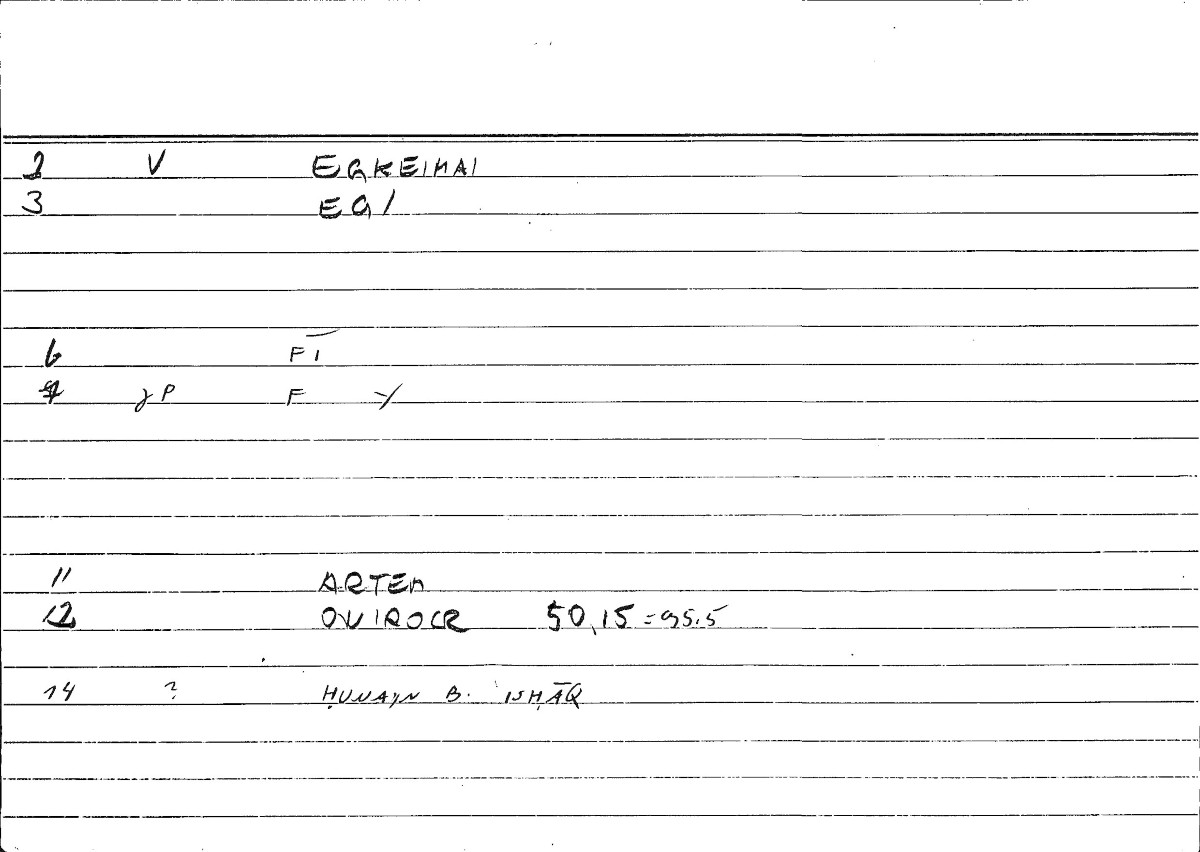 2 V EGKEIMAI
3 EG/
6 FĪ
7 γP F
11 ARTEM
12 ONIROCR 50,15=95.5
14 ? ḤUNAYN B. ʾISḤĀQ